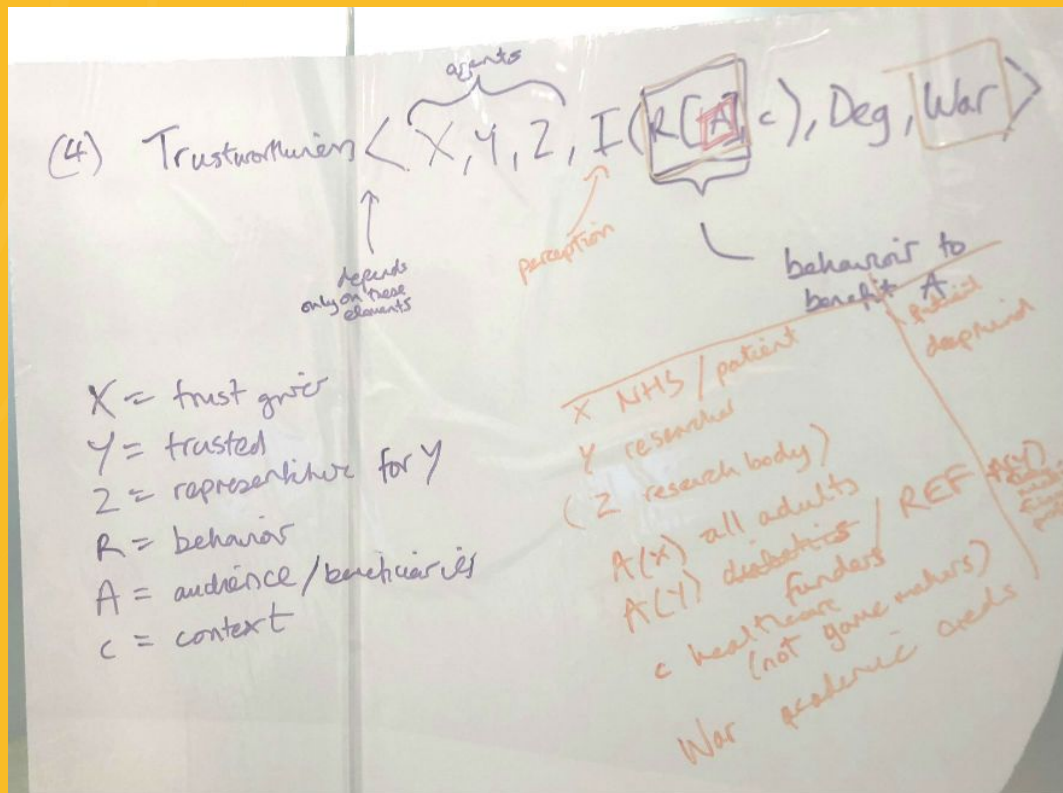 agents
(4) Trustworthiness < X, Y, Z, I(R[A], c), Deg, War >
depends
only on these
elements
perception
behaviour to
benefit A
X = trust giver
Y = trusted
Z = representative for Y
R = behaviour
A = audience/beneficiaries
c = context
X NHS / patient
Y researcher
(Z research body)
A(X) all adults
A(Y) diabetics / REF
funders
c healthcare
(not game makers)
War academic creds
patient
deepmind
A(Y)